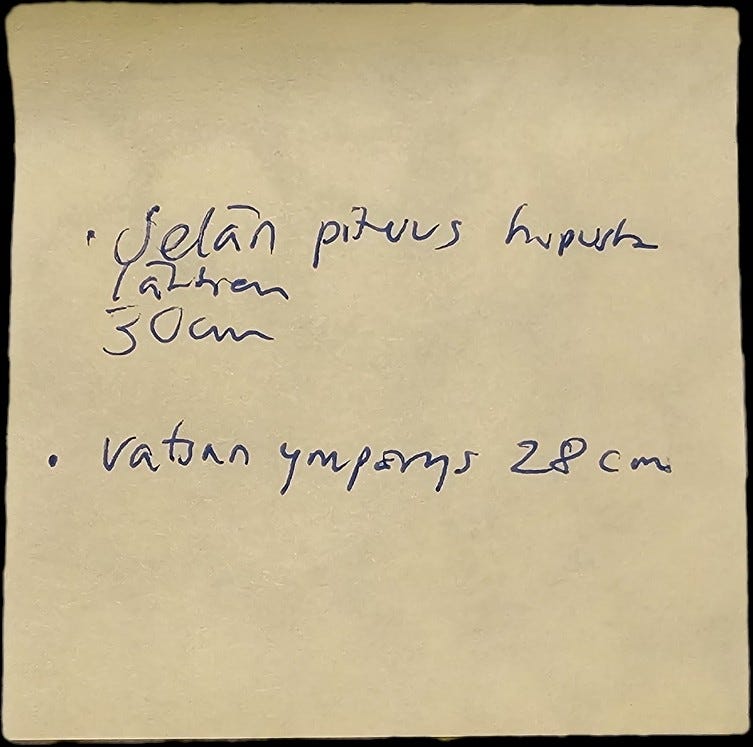 • Selän pituus hupusta
lähtien
30cm
• vatsan ympärys 28 cm